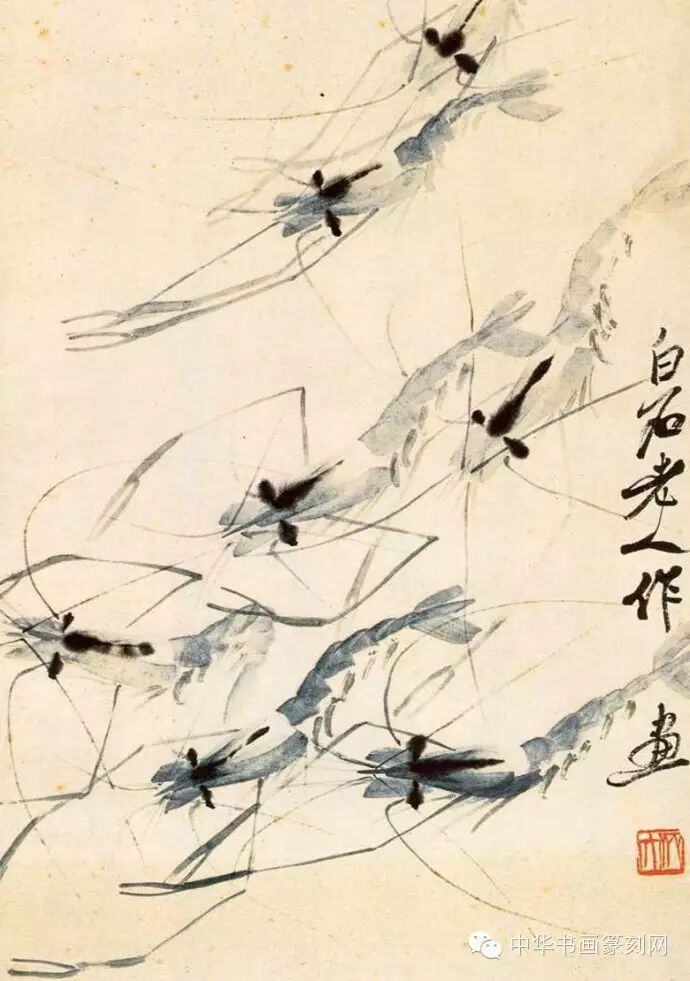 白石老人作
画
木人
中华书画篆刻网